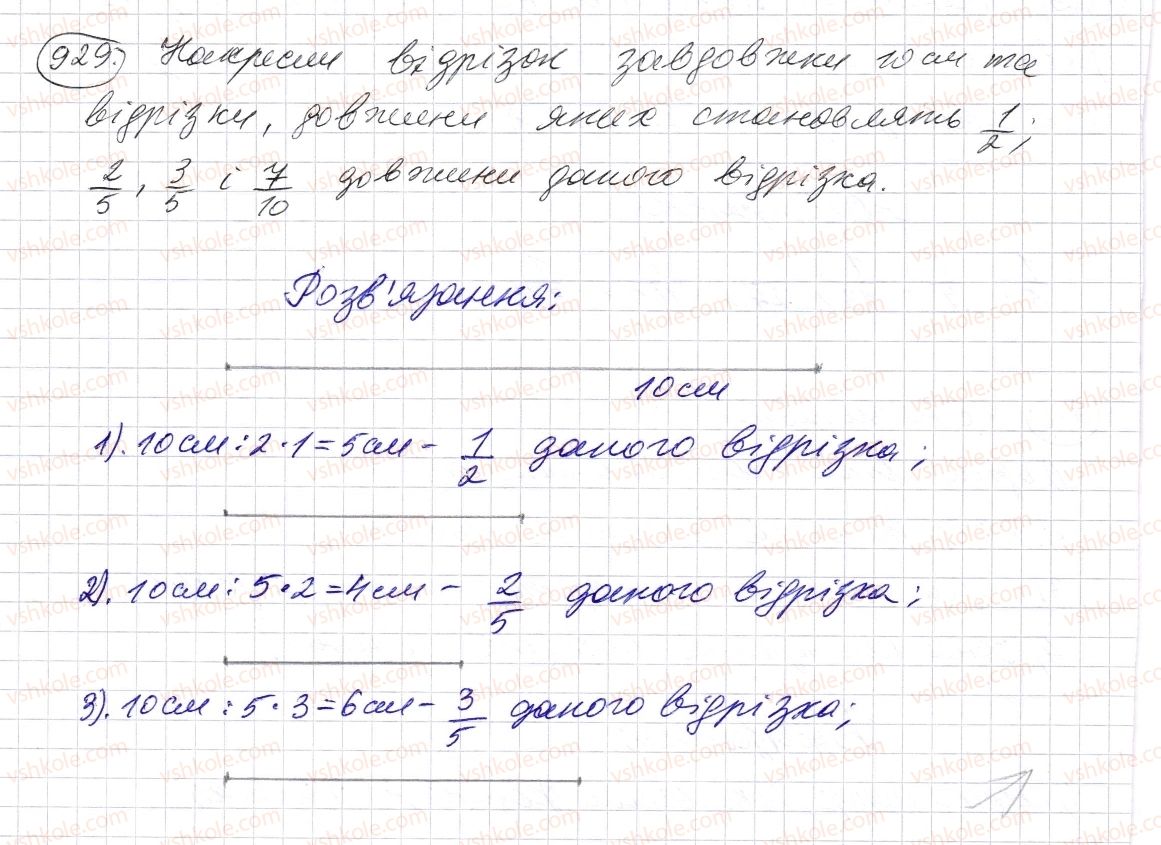 929. Накресли відрізок завдовжки 10 см та
відрізки, довжини яких становлять 1/2;
2/5, 3/5 і 7/10 довжини даного відрізка.
Розв'язання:
10 см
1). 10 см : 2 · 1 = 5 см - 1/2 даного відрізка;
2). 10 см : 5 · 2 = 4 см - 2/5 даного відрізка;
3). 10 см : 5 · 3 = 6 см - 3/5 даного відрізка;
vshkole.com